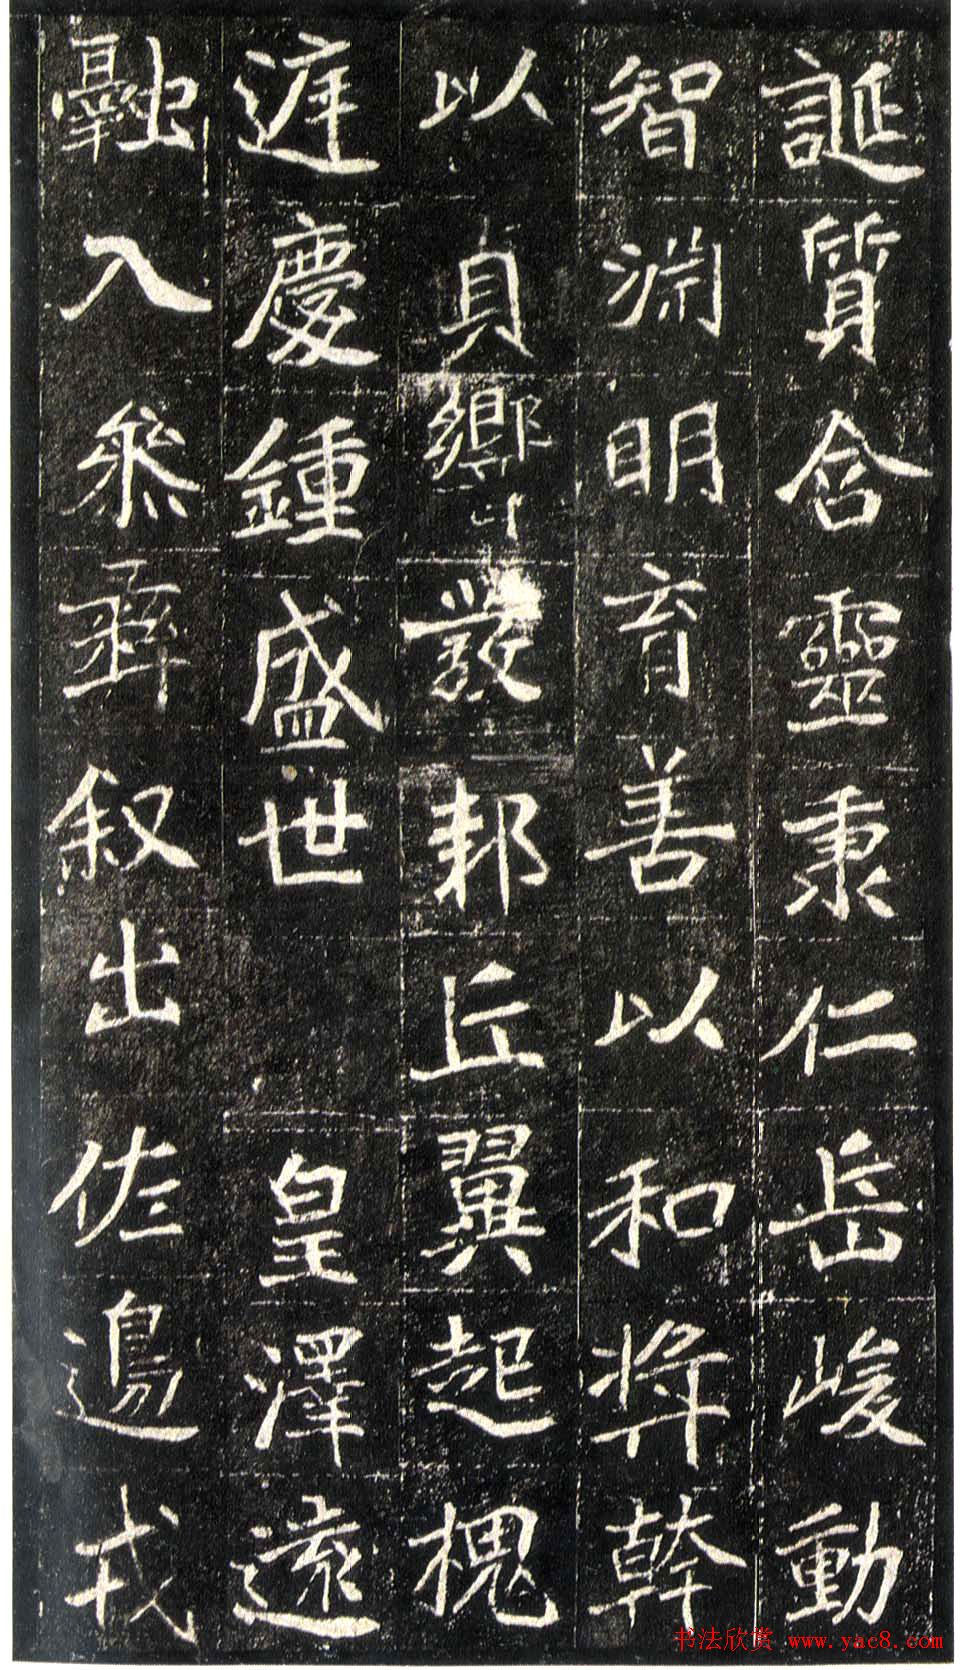 誕質含靈秉仁岳峻動
智渊明育善以和将幹
以貞響發邦丘翼起槐
庭慶鍾盛世 皇澤遠
融入參彝叙出佐邊戎
书法欣赏 www.yac8.com